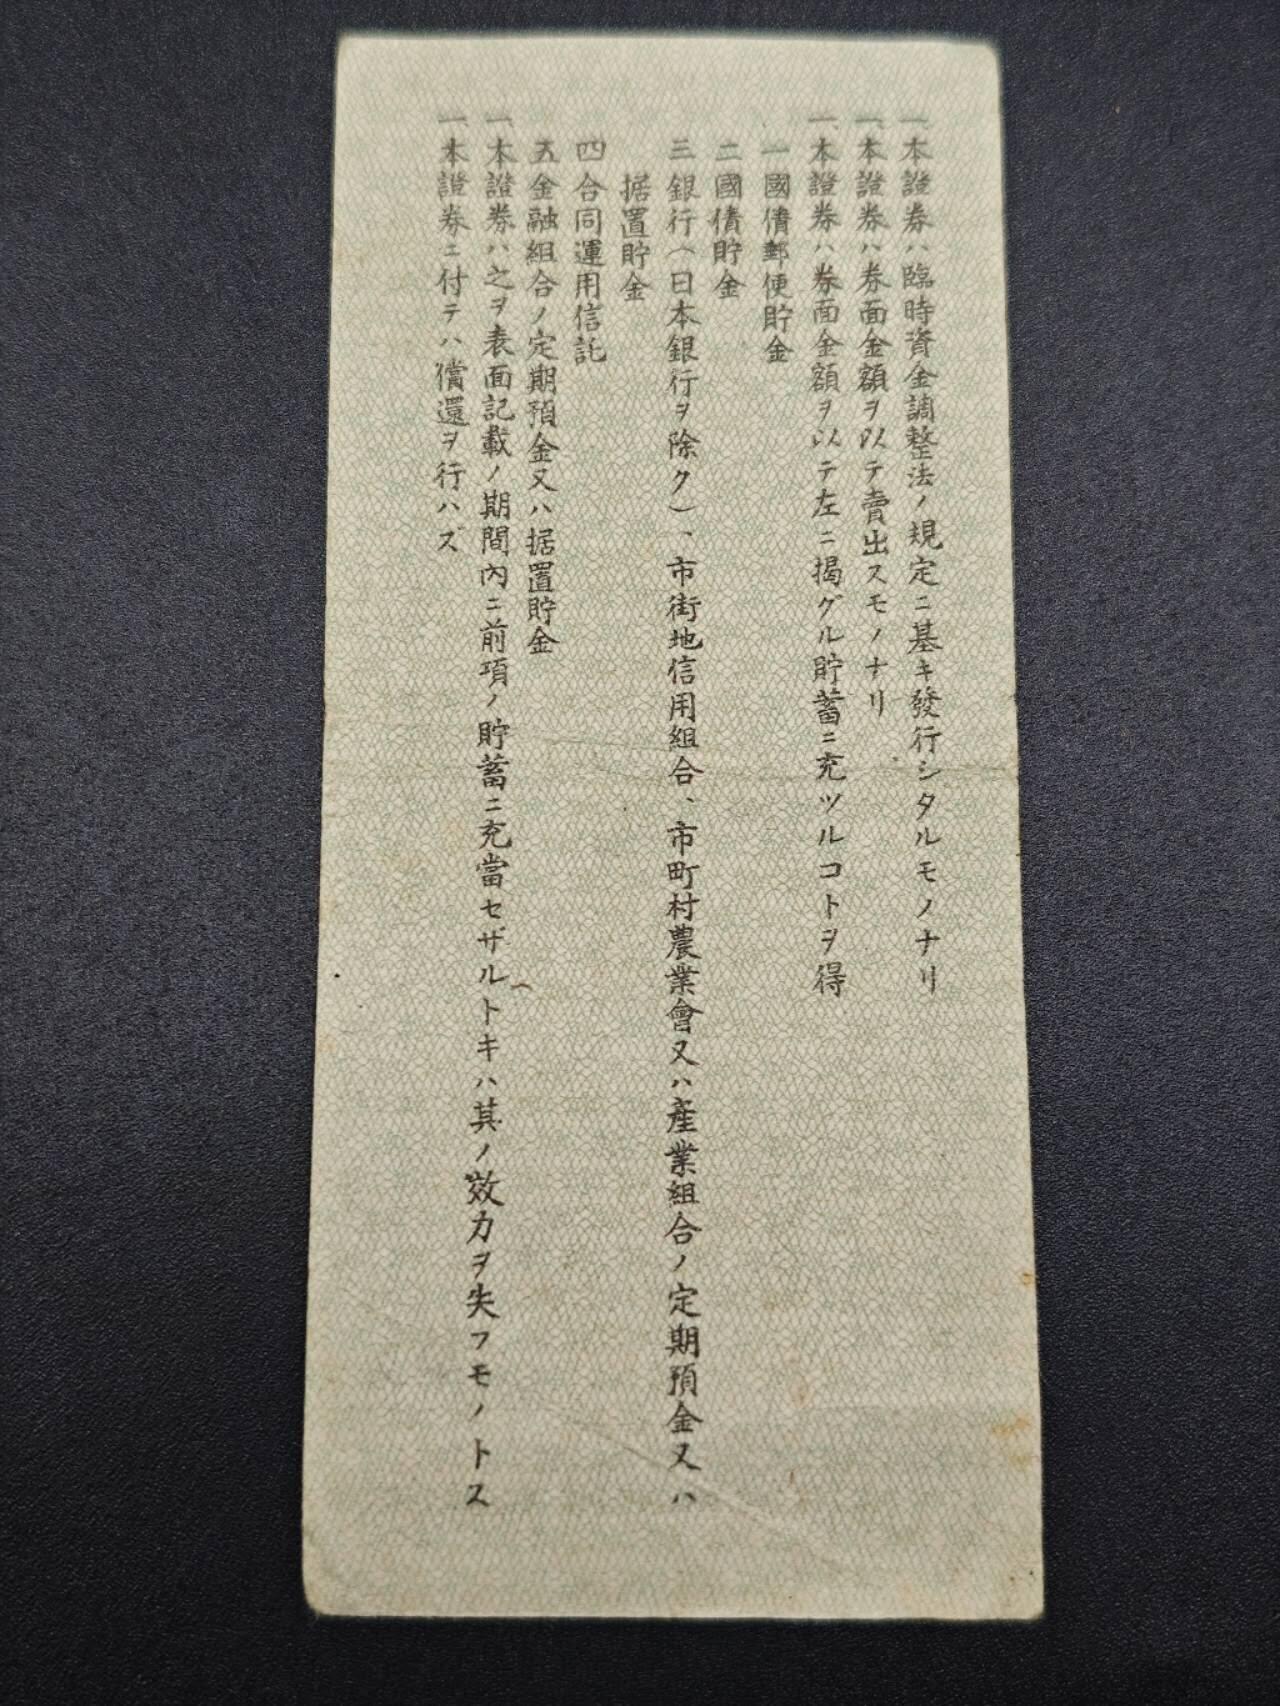 一、本證券ハ臨時資金調整法ノ規定ニ基キ發行シタルモノナリ
一、本證券ハ券面金額ヲ以テ賣出スモノナリ
一、本證券ハ券面金額ヲ以テ左ニ揭グル貯蓄ニ充ツルコトヲ得
一 國債郵便貯金
二 國債貯金
三 銀行(日本銀行ヲ除ク)、市街地信用組合、市町村農業會又ハ產業組合ノ定期預金又ハ
据置貯金
四 合同運用信託
五 金融組合ノ定期預金又ハ据置貯金
一、本證券ハ之ヲ表面記載ノ期間內ニ前項ノ貯蓄ニ充當セザルトキハ其ノ效力ヲ失フモノトス
一、本證券ニ付テハ償還ヲ行ハズ